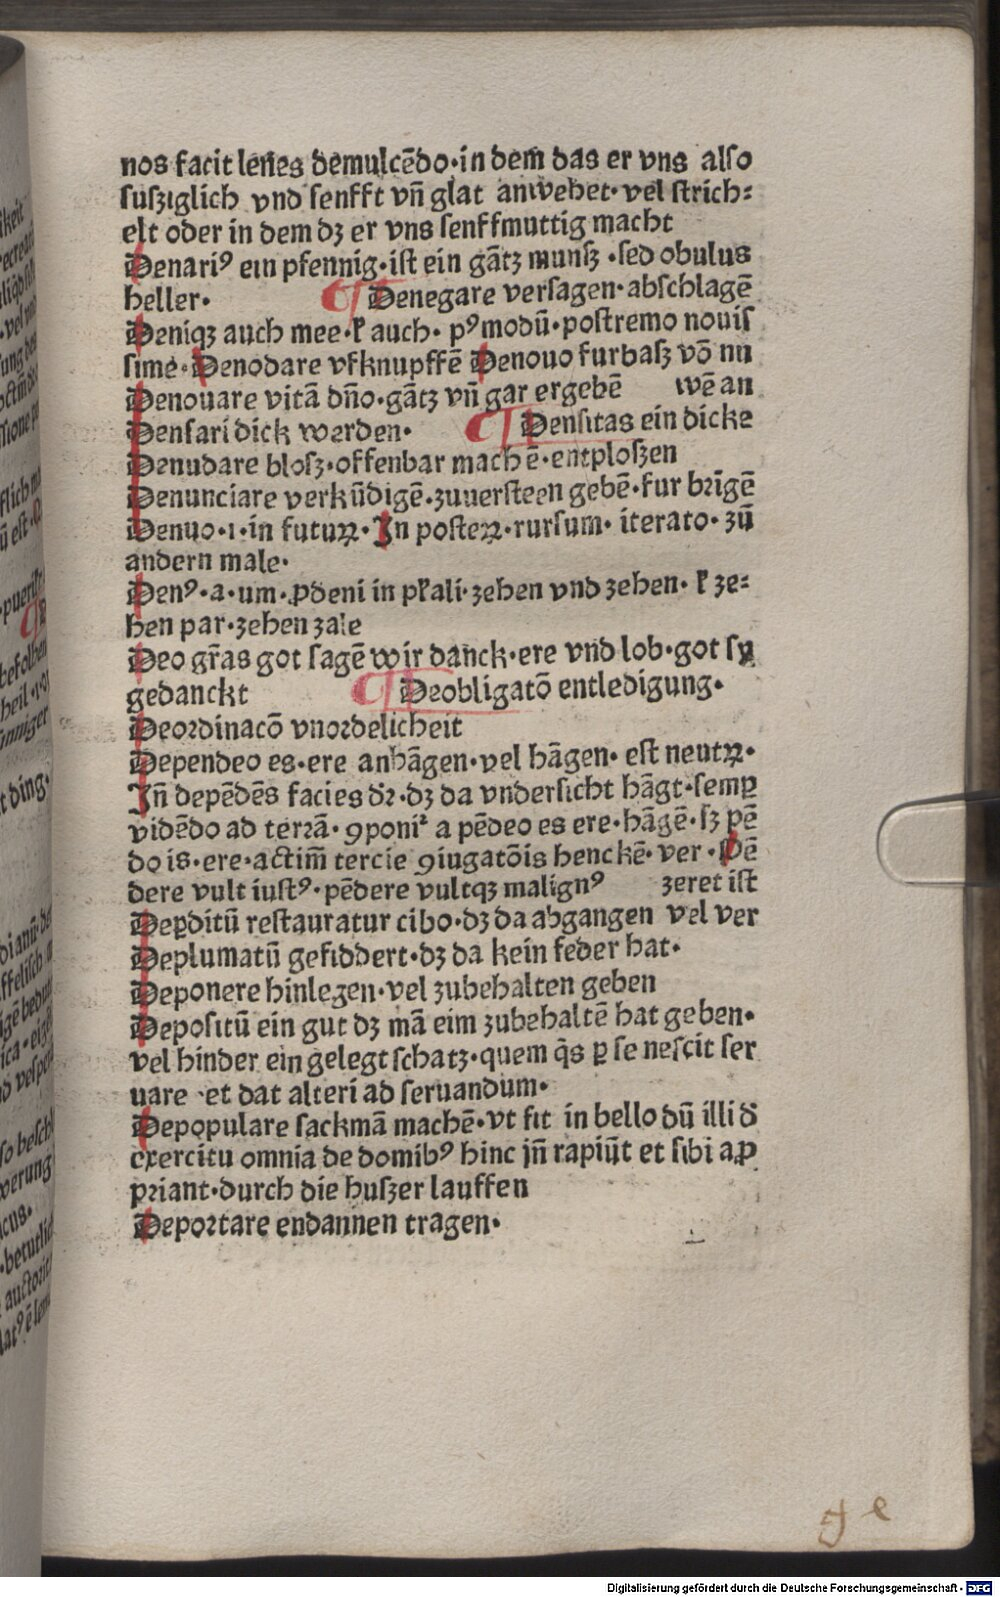 nos facit lenes demulcēdo·in dem̄ das er vns also
susʒiglich vnd senfft vn̄ glat anwehet·vel strich⸗
elt oder in dem dʒ er vns senffmuttig macht
Denariꝰ ein pfennig·ist ein gātʒ munsʒ·sed obulus
heller· ¶ Denegare versagen·abschlagē
Deniqʒ auch mee·ł auch· pꝰmodū·postremo nouis
sime·Denodare vfknupffē Denouo furbasʒ vō nu
Denouare vitā dn̄o·gātʒ vn̄ gar ergebē wē an
Densari dick werden· ¶ Densitas ein dicke
Denudare blosʒ·offenbar machē·entplosʒen
Denunciare verkūdigē·zuuersteen gebē·fur brīgē
Denuo·ı·in futuꝝ·In posteꝝ·rursum·iterato·zū
andern male·
Denꝰ·a·um·ꝓdeni in płali·zehen vnd zehen·ł ze⸗
hen par·zehen zale
Deo gr̄as got sagē wir danck·ere vnd lob·got sy
gedanckt ¶ Deobligatō entledigung·
Deordinacō vnordelicheit
Dependeo es·ere anhāgen·vel hāgen·est neutꝝ·
Jn̄ depēdēs facies dr̄·dʒ da vndersicht hāgt·semꝑ
vidēdo ad terrā·ꝯponiᷣ a pēdeo es ere·hāgē·sʒ pē
do is·ere·actim̄ tercie ꝯiugatōis henckē·ver·Pē
dere vult iustꝰ·pēdere vultqʒ malignꝰ zeret ist
Deꝑditū restauratur cibo·dʒ da abgangen vel ver
Deplumatū gefiddert·dʒ da kein feder hat·
Deponere hinlegen·vel zubehalten geben
Depositū ein gut dʒ mā eim zubehaltē hat geben·
vel hinder ein gelegt schatʒ·quem q̄s ꝑ se nescit ser
uare·et dat alteri ad seruandum·
Depopulare sackmā machē·vt fit in bello dū illi d̄
exercitu omnia de domibꝰ hinc jn̄ rapiūt et sibi aꝓ
priant·durch die husʒer lauffen
Deportare endannen tragen·
g e
Digitalisierung gefördert durch die Deutsche Forschungsgemeinschaft - DFG